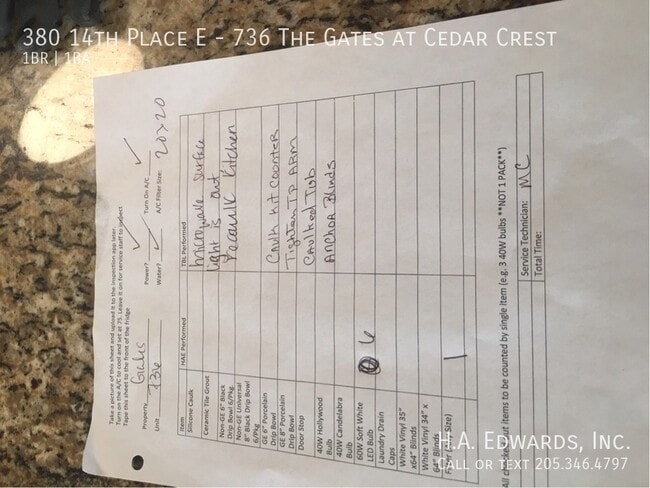 380 14th Place E - 736 The Gates at Cedar Crest
1BR | 1BA
Take a picture of this sheet and upload it to the inspection app later.
Turn on the A/C to cool and set at 75. Leave it on for service staff to inspect
Tape this sheet to the front of the fridge
Property Gates Power? ✓ Turn On A/C ✓
Unit 736 Water? ✓ A/C Filter Size: 20x20
Item HAE Performed TBL Performed
Silicone Caulk microwave surface
Ceramic Tile Grout light is out
Non-GE 6" Black Drip Bowl 6/Pkg. recaulk kitchen
Non-GE Universal 8" Black Drip Bowl 6/Pkg.
GE 6" Porcelain Drip Bowl Caulk Kit Counter
GE 8" Porcelain Drip Bowl Tighten TP ARM
Door Stop Caulked Tub
40W Hollywood Bulb Anchor Blinds
40W Candelabra Bulb
60W Soft White LED Bulb 6
Laundry Drain Caps
White Vinyl 35" x64" Blinds
White Vinyl 34" x 64" Blinds
Filter (Any Size) 1
All checked out items to be counted by single item (e.g. 3 40W bulbs **NOT 1 PACK**)
Service Technician: MC
Total Time:
H.A. Edwards, Inc.
Call or text 205.346.4797